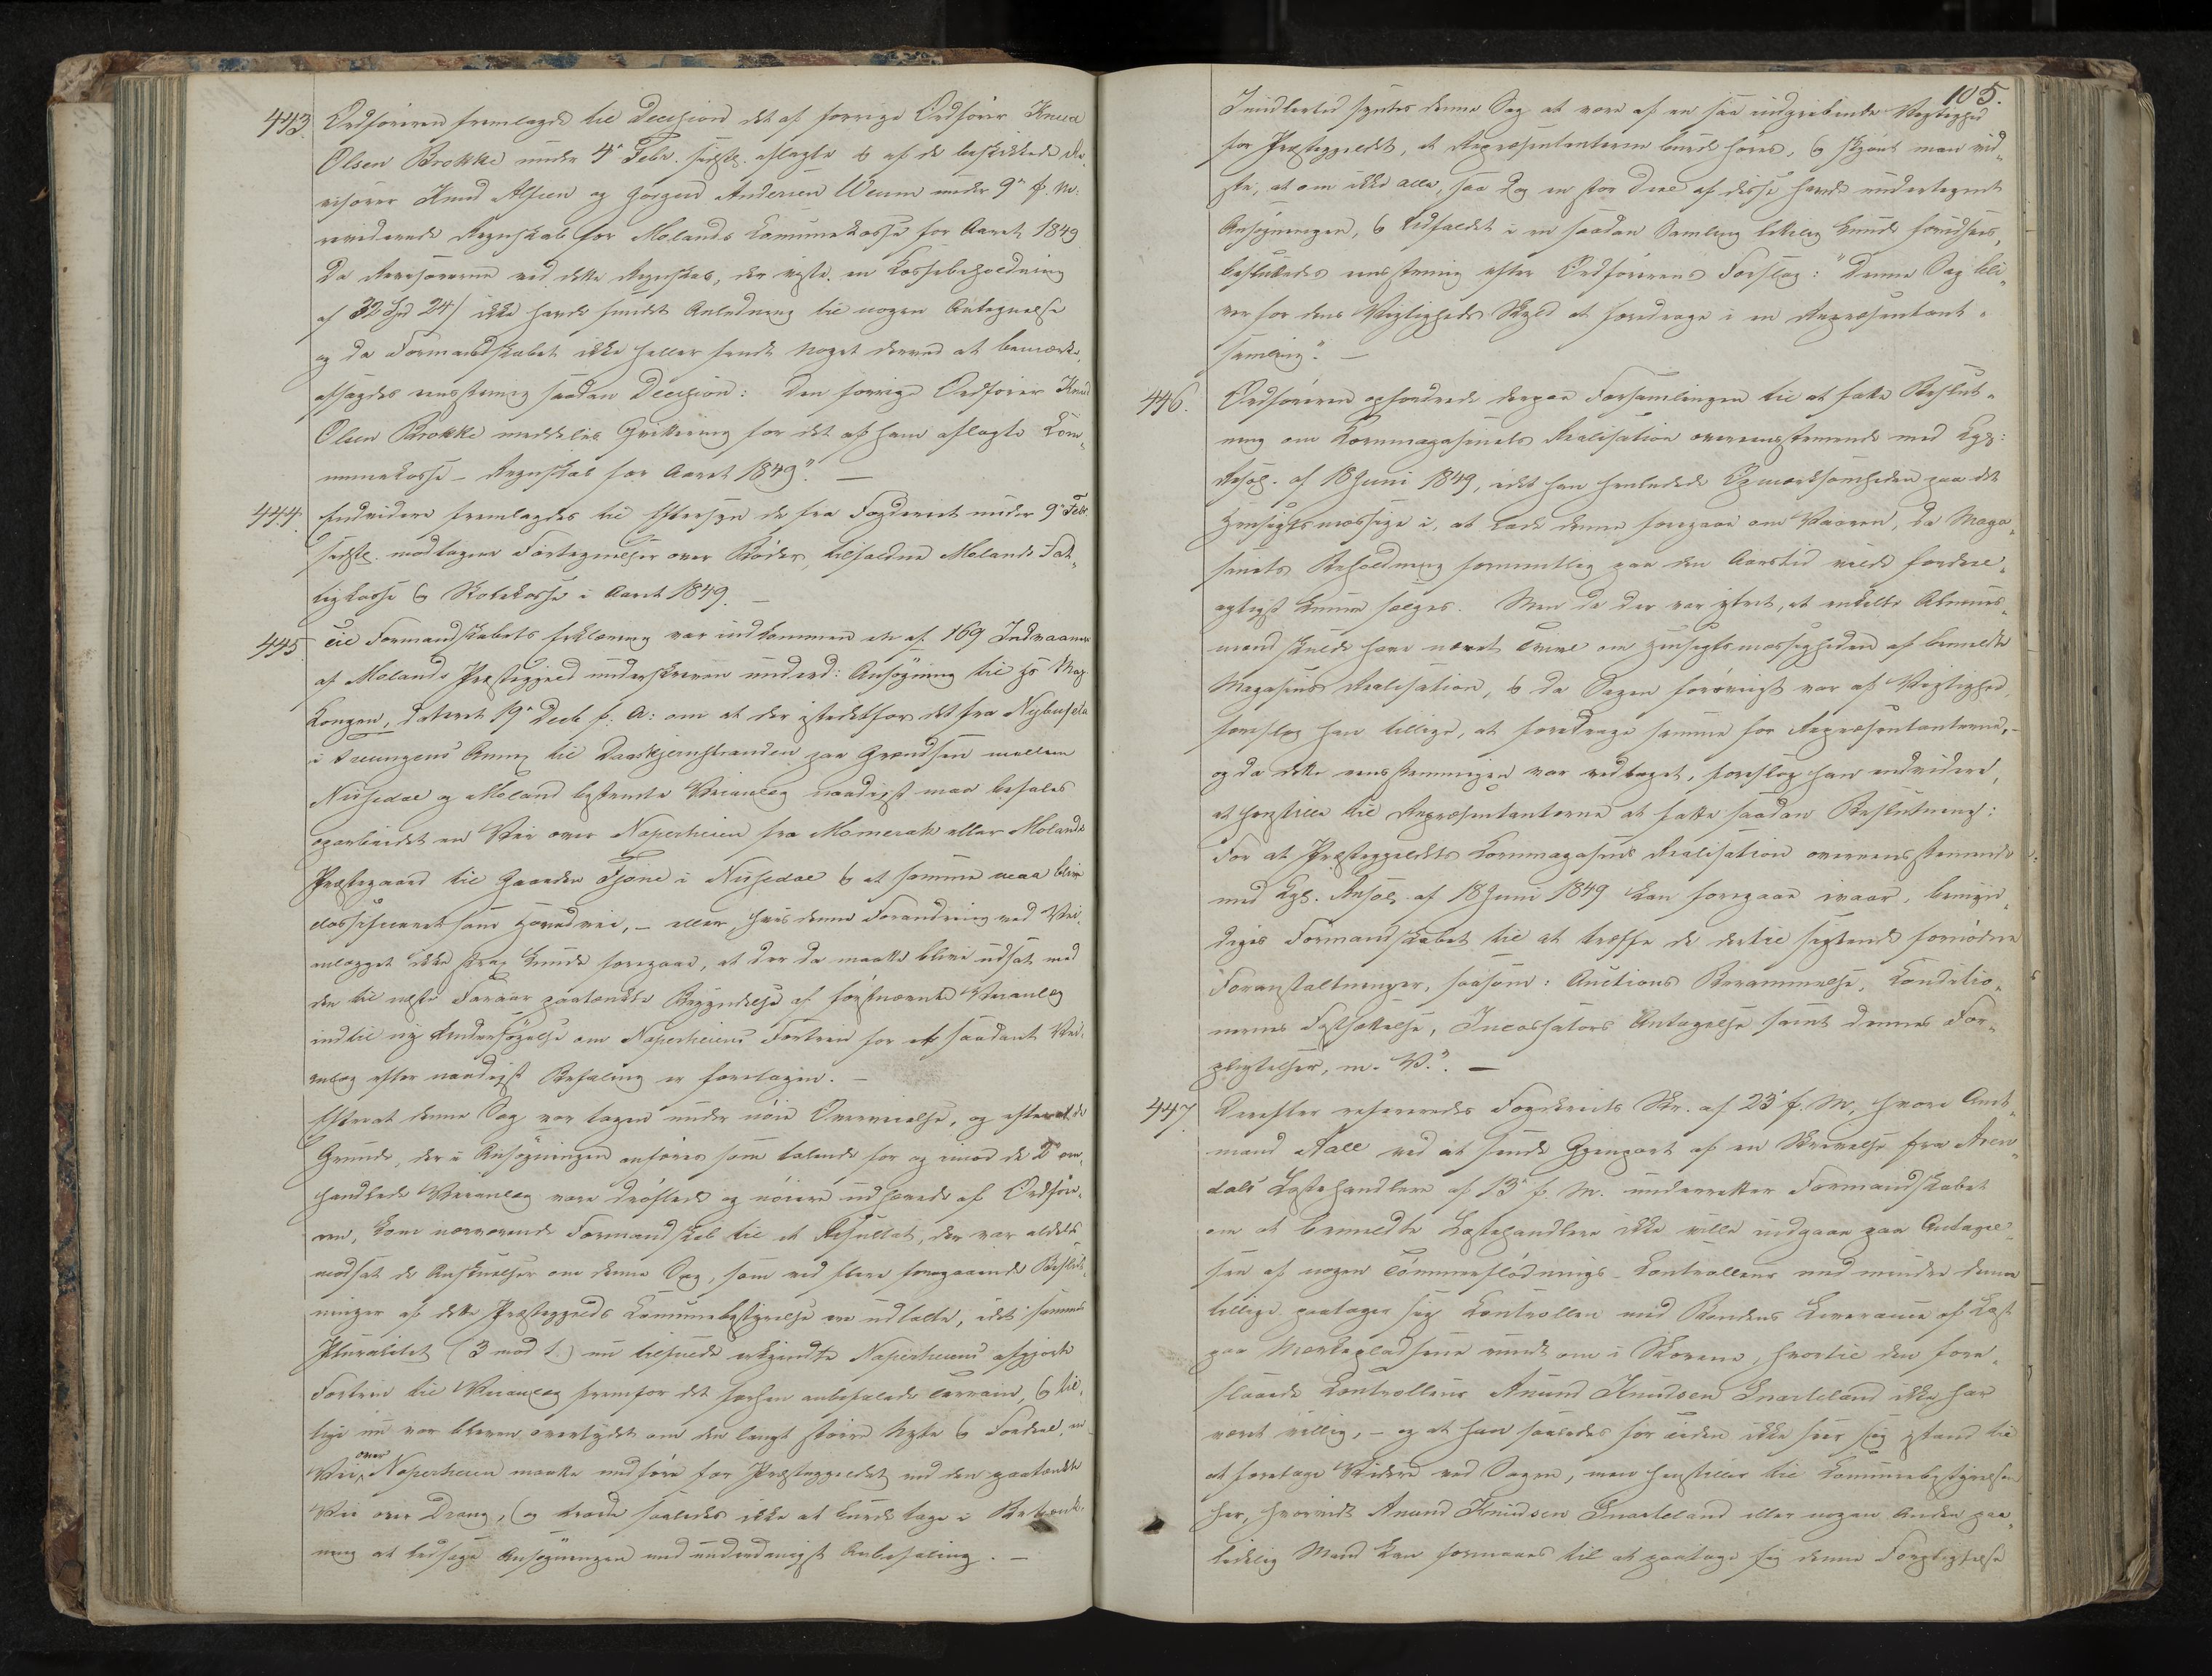 443. Ordføreren fremlagde til Decision det af forrige Ordfører Knud
Olsen Brokke under 4de Febr. sidstl. aflagte & af de beskikkede Re-
visorer Knud Alfsen og Jørgen Andersen Weum under 9de f. M.
reviderede Regnskab for Molands Comunekasse for Aaret 1849.
Da Revisorerne ved dette Regnskab, der viste en Cassebeholdning
af 32 Spd 24 / ikke havde fundet Anledning til nogen Antegnelse
og da Formandskabet ikke heller fandt Noget derved at bemærke,
afsagdes eenstemmig saadan Decision: Den forrige Ordfører Knud
Olsen Brokke meddeles Qvittering for det af ham aflagte Com-
munekasse-Regnskab for Aaret 1849". —
444. Endvidere fremlagdes til Eftersyn de fra Fogderiet under 9de Febr.
sidstl. modtagne Fortegnelser over Bøder, tilfaldne Molands Fat-
tigkasse & Skolekasse i Aaret 1849. —
445. Til Formandskabets Erklæring var indkommen en af 169 Indvaanere
af Molands Præstegjeld underskreven underd: Ansøgning til Hs Maj.
Kongen, dateret 19de Decb f. A: om at der istedetfor det fra Nybufeta
i Treungens Annex til Daaskjernstranden paa Grændsen mellem
Nissedal og Moland bestemte Veianlæg naadigst maa befales
oparbeidet en Vei over Naperheien fra Momerak eller Molands
Præstegaard til Gaarden Tjone i Nissedal & at samme maa blive
classificeret som Hovedvei, – eller, hvis denne Forandring ved Vei-
anlægget ikke strax kunde foregaae, at der da maatte blive udsat med
den til næste Foraar paatænkte Begyndelse af førstnævnte Veianlæg
indtil ny Undersøgelse om Naperheiens Fortrin for et saadant Vei-
anlæg efter naadigst Befaling er foretagen. —
Efterat denne Sag var tagen under nøie Overveielse, og efterat de
Grunde, der i Ansøgningen anføres som talende for og imod de 2de om-
handlede Veianlæg vare drøftede og nøiere udhævede af Ordføre-
ren, kom nærværende Formandskab til et Resultat, der var aldeles
modsat de Anskuelser om denne Sag, som ved flere foregaaende Beslut-
ninger af dette Præstegjelds Comunebestyrelse ere udtalte, idet sammes
Pluralitet (3 mod 1.) nu tilfulde erkjendte Naperheiens afgjorte
Fortrin til Veianlæg fremfor det forhen anbefalede Terrain, & til-
lige nu var bleven overtydet om den langt større Nytte & Fordeel, en
Vei over Naperheien maatte medføre for Præstegjeldet end den paatænkte
Vei over Drang, og troede saaledes ikke at burde tage i Betænk-
ning at ledsage Ansøgningen med underdanigst Anbefaling. —
105.
Imidlertid syntes denne Sag at være af en saa indgribende Vigtighed
for Præstegjeldet, at Repræsentanterne burde høres, & skjønt man vid-
ste, at om ikke alle, saa dog en stor Deel af disse havde undertegnet
Ansøgningen, & Udfaldet i en saadan Samling letelig kunde forudsees,
besluttedes eenstemmig efter Ordførerens Forslag: "Denne Sag bli-
ver for dens Vigtigheds Skyld at foredrage i en Repræsentant-
samling". —
446. Ordføreren opfordrede derpaa Forsamlingen til at fatte Beslut-
ning om Kornmagasinets Realisation overeensstemmende med Kgl:
Resol. af 18 Juni 1849, idet han henledede Opmærksomheden paa det
Hensigtsmæssige i, at lade denne foregaae om Vaaren, da Maga-
sinets Beholdning formentlig paa den Aarstid vilde fordeel-
agtigst kunne sælges. Men da der var ytret, at enkelte Almues-
mænd skulde have næret Tvivl om Hensigtsmæssigheden af bemeldte
Magasins Realisation, & da Sagen forøvrigt var af Vigtighed,
foreslog han tillige, at foredrage samme for Repræsentanterne, –
og da dette eenstemmigen var vedtaget, foreslog han endvidere,
at henstille til Repræsentanterne at fatte saadan Beslutning:
For at Præstegjeldets Kornmagasins Realisation overeensstemmende
med Kgl. Resol. af 18 Juni 1849 kan foregaae ivaar, bemyn-
diges Formandskabet til at træffe de dertil sigtende fornødne
Foranstaltninger, saasom: Auctions Berammelse, Conditio-
nernes Fastsættelse, Incassators Antagelse samt dennes For-
pligtelser, m. V." —
447. Derefter refereredes Fogderiets Skr. af 23de f. M., hvori Amt-
mand Aall ved at sende Gjenpart af en Skrivelse fra Aren-
dals Lasthandlere af 13de f. M. underretter Formandskabet
om at bemeldte Lasthandlere ikke ville indgaae paa Antagel-
sen af nogen Tømmerflødnings-Controlleur med mindre denne
tillige paatager sig Controllen med Bondens Leverance af Last
paa Mærkepladsene rundt om i Skovene, hvortil den fore-
slaaede Controlleur Anund Knudsen Snarteland ikke har
været villig, – og at han saaledes for Tiden ikke seer sig istand til
at foretage Videre ved Sagen, men henstiller til Comunebestyrelsen
her, hvorvidt Anund Knudsen Snarteland eller nogen Anden paa-
lidelig Mand kan formaaes til at paatage sig denne Forpligtelse